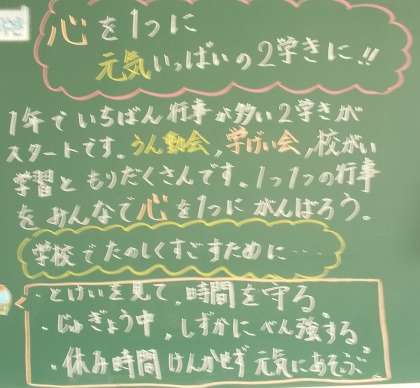 心を1つに
元気いっぱいの2学きに!!
1年でいちばん行事が多い2学きが
スタートです。うん動会,学げい会,校がい
学習ともりだくさんです。1つ1つの行事
をみんなで心を1つにがんばろう。
学校でたのしくすごすために……
・とけいを見て,時間を守る
・じゅぎょう中,しずかにべん強する
・休み時間けんかせず元気にあそぶ